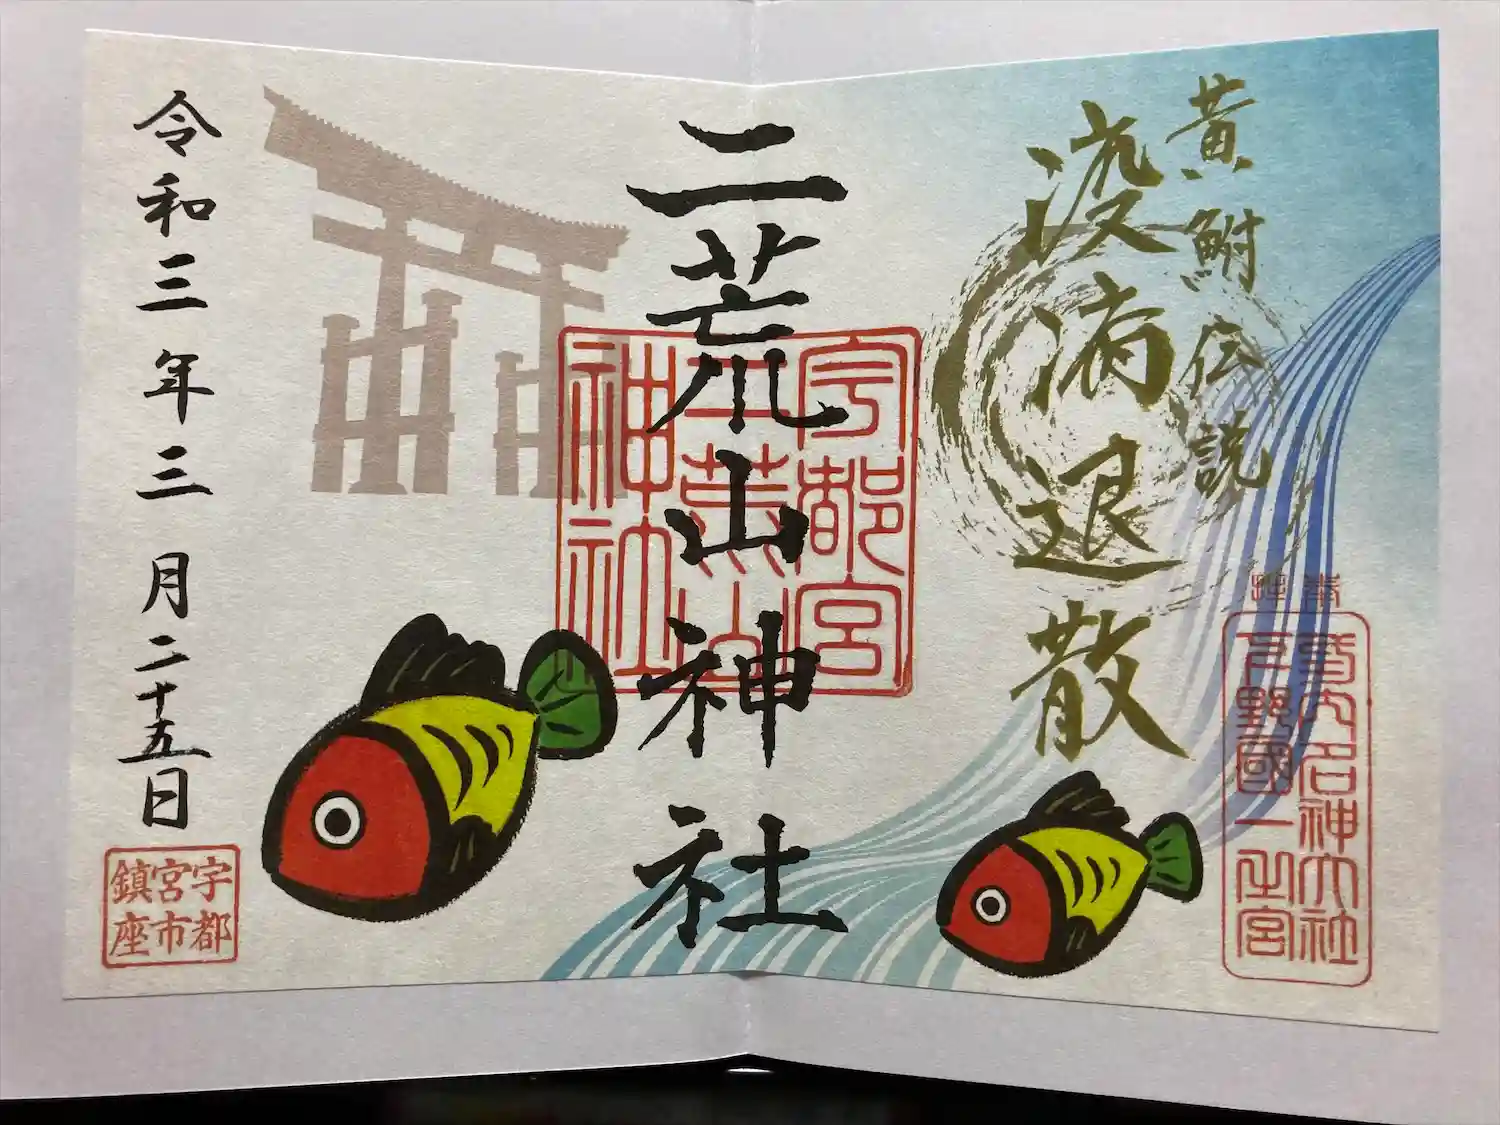 黄鮒伝説
疫病退散
奉拝
式内名神大社
下野國一之宮
二荒山神社
宇都宮
二荒山
神社
令和三年三月二十五日
宇都
宮市
鎮座